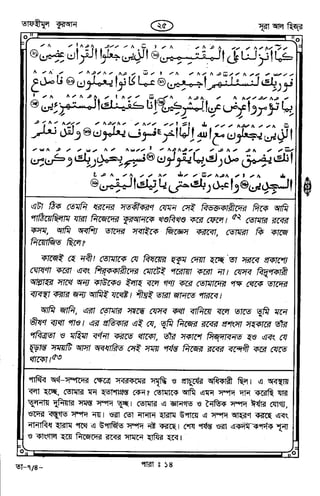 তাফহীমুল কুরআন
২৫
সূরা আল হিজর
كَمَا أَنْزَلْنَا عَلَى الْمُقْتَسِمِينَ ۞ الَّذِينَ جَعَلُوا الْقُرْآنَ عِضِينَ ۞
فَوَرَبِّكَ لَنَسْئَلَنَّهُمْ أَجْمَعِينَ ۞ عَمَّا كَانُوا يَعْمَلُونَ ۞ فَاصْدَعْ
بِمَا تُؤْمَرُ وَأَعْرِضْ عَنِ الْمُشْرِكِينَ ۞ إِنَّا كَفَيْنَاكَ الْمُسْتَهْزِءِينَ ۞
الَّذِينَ يَجْعَلُونَ مَعَ اللَّهِ إِلَهًا آخَرَ فَسَوْفَ يَعْلَمُونَ ۞ وَلَقَدْ نَعْلَمُ
أَنَّكَ يَضِيقُ صَدْرُكَ بِمَا يَقُولُونَ ۞ فَسَبِّحْ بِحَمْدِ رَبِّكَ وَكُنْ مِنَ
السَّاجِدِينَ ۞ وَاعْبُدْ رَبَّكَ حَتَّى يَأْتِيَكَ الْيَقِينُ ۞
এটা ঠিক তেমনি ধরনের সতর্কীকরণ যেমন সেই বিভক্তকারীদের দিকে আমি
পাঠিয়েছিলাম যারা নিজেদের কুরআনকে খণ্ডবিখণ্ড করে ফেলে।৫২ তোমার রবের
কসম, আমি অবশ্যি তাদের সবাইকে জিজ্ঞেস করবো, তোমরা কি কাজে
নিয়োজিত ছিলে?
কাজেই হে নবী! তোমাকে যে বিষয়ের হুকুম দেয়া হচ্ছে তা সরবে প্রকাশ্যে
ঘোষণা করো এবং শিরককারীদের মোটেই পরোয়া করো না। যেসব বিদ্রূপকারী
আল্লাহর সাথে অন্য কাউকেও ইলাহ বলে গণ্য করে তোমাদের পক্ষ থেকে তাদের
ব্যবস্থা করার জন্য আমিই যথেষ্ট। শীঘ্রই তারা জানতে পারবে।
আমি জানি, এরা তোমার সম্বন্ধে যেসব কথা বানিয়ে বলে তাতে তুমি মনে
ভীষণ ব্যথা পাও। এর প্রতিকার এই যে, তুমি নিজের রবের প্রশংসা সহকারে তাঁর
পবিত্রতা ও মহিমা বর্ণনা করতে থাকো, তাঁর সকাশে সিজদাবনত হও এবং যে
চূড়ান্ত সময়টি আসা অবধারিত সেই সময় পর্যন্ত নিজের রবের বন্দেগী করে যেতে
থাকো।৫৩
পার্থিব অর্থ-সম্পদের ক্ষেত্রে সবরকমের সমৃদ্ধি ও প্রাচুর্যের অধিকারী ছিল। এ অবস্থায়
বলা হচ্ছে, তোমার মন হতাশাগ্রস্ত কেন? তোমাকে আমি এমন সম্পদ দান করেছি যার
তুলনায় দুনিয়ার সমস্ত সম্পদ তুচ্ছ। তোমার এ জ্ঞানগত ও নৈতিক সম্পদ ঈর্ষার যোগ্য,
ওদের বস্তুগত সম্পদ নয়। ওরা তো নানান হারাম উপায়ে এ সম্পদ আহরণ করছে এবং
নানাবিধ হারাম পথে এ উপার্জিত সম্পদ নষ্ট করছে। শেষ পর্যন্ত ওরা একদম কপর্দক শূন্য
ও কাংগাল হয়ে নিজেদের রবের সামনে হাযির হবে।
তা-৭/৪-
পারা : ১৪